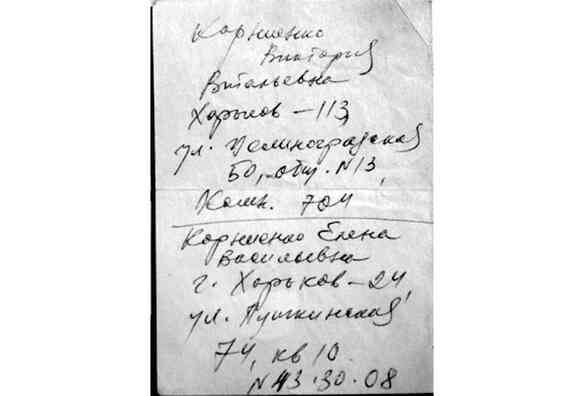 Корниенко
Виктория
Витальевна
Харьков – 113,
ул. Целиноградская
50, общ. N 13,
Комн. 704
Корниенко Елена
Васильевна
г. Харьков – 24,
ул. Пушкинская
74, кв 10.
N 43.30.08